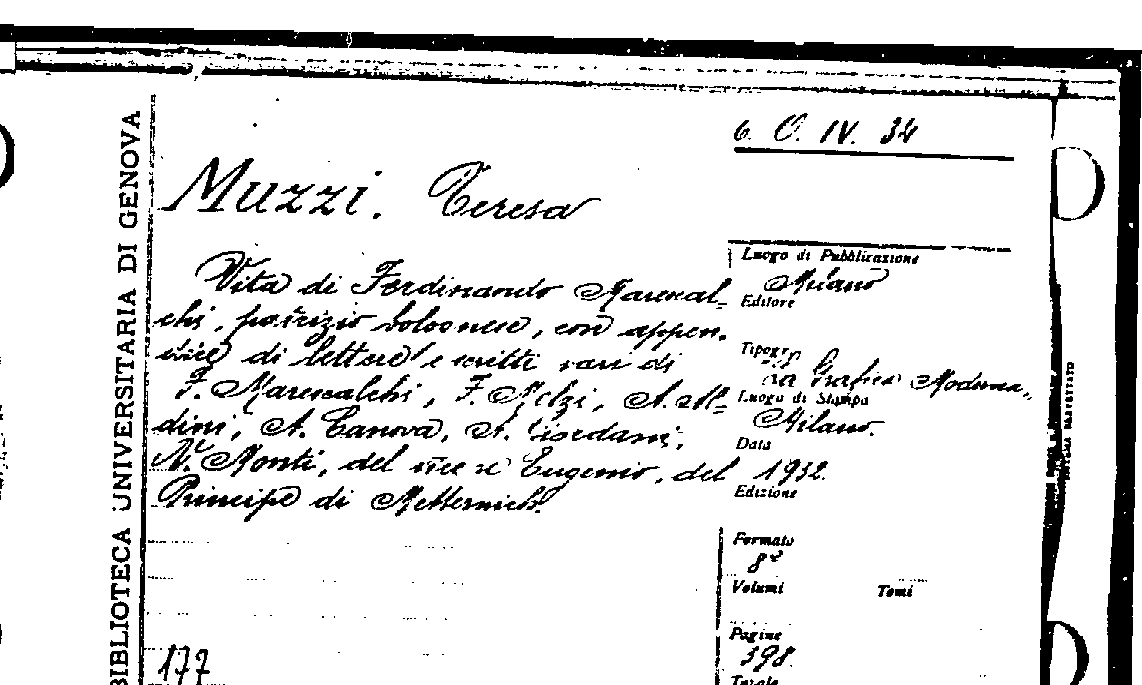 6. O. IV. 34
BIBLIOTECA UNIVERSITARIA DI GENOVA
Muzzi. Teresa
Vita di Ferdinando Marescal-
chi, patrizio bolognese, con appen-
dice di lettere e scritti vari di
F. Marescalchi, F. Melzi, A. Al-
dini, A. Canova, P. Giordani,
V. Monti, del vice re Eugenio, del
Principe di Metternich.
Luogo di Pubblicazione
Milano
Editore
Tipogr
Grafica Moderna.
Luogo di Stampa
Milano.
Data
1932.
Edizione
Formato
8º
Volumi Tomi
Pagine
398.
Totale
177